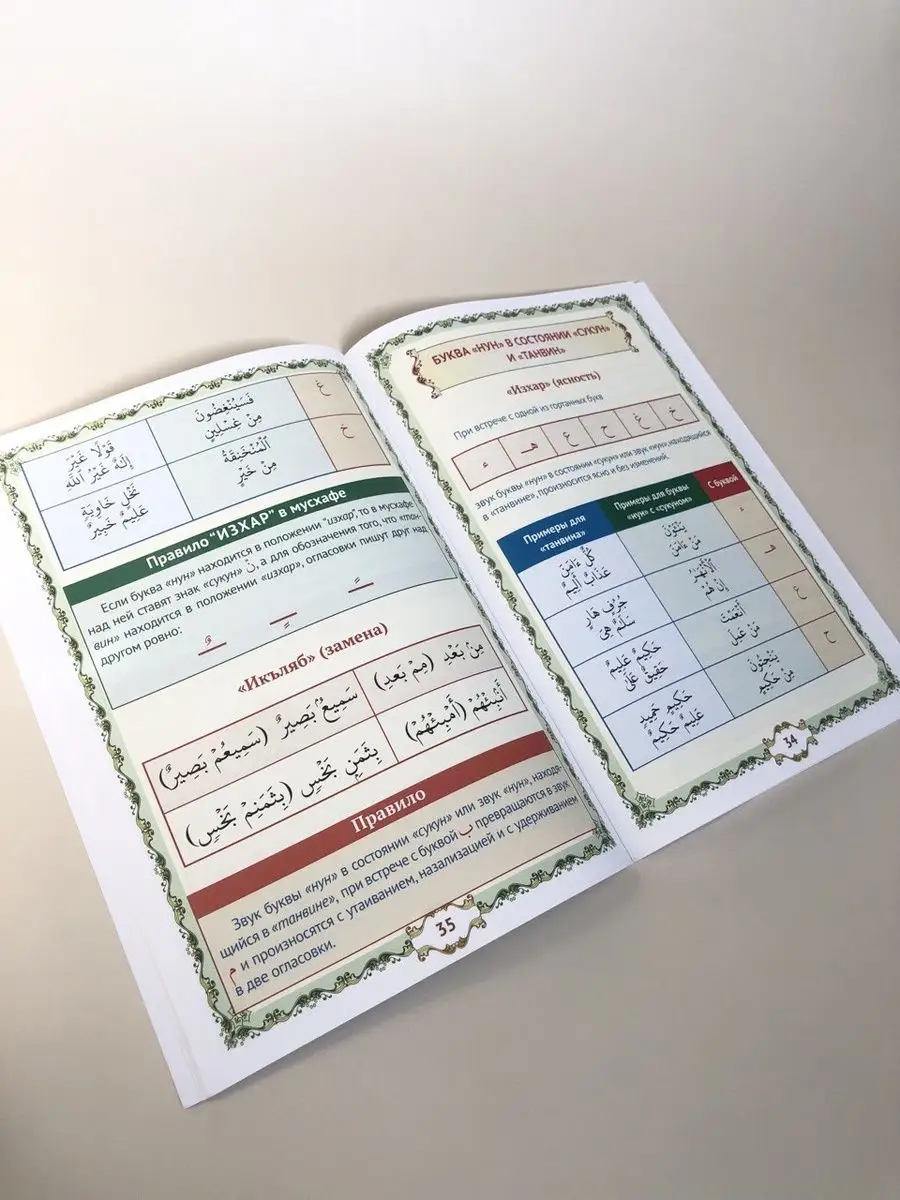 БУКВА «НУН» В СОСТОЯНИИ «СУКУН»
И «ТАНВИН»
«Изхар» (ясность)
При встрече с одной из гортанных букв
ء هـ ع ح غ خ
звук буквы «нун» в состоянии «сукун» или звук «нун», находящийся
в «танвине», произносится ясно и без изменений.
С буквой
Примеры для буквы
«нун» с «сукуном»
Примеры для
«танвина»
ء
مَنْ ءَامَنَ
كُلٌّ ءَامَنَ
عَذَابٌ أَلِيمٌ
هـ
إِنْ هُمْ
جُرُفٍ هَارٍ
سَلَٰمٌ هِىَ
ع
أَنْعَمْتَ
مَنْ عَمِلَ
حَكِيمٌ عَلِيمٌ
حَقِيقٌ عَلَىٰ
ح
مِنْ حَكِيمٍ
حَكِيمٍ حَمِيدٍ
عَلِيمٌ حَكِيمٌ
34
غ
فَسَيُنْغِضُونَ
مِنْ غِسْلِينٍ
قَوْلًا غَيْرَ
إِلَٰهٌ غَيْرُ اللَّهِ
خ
الْمُنْخَنِقَةُ
مِنْ خَيْرٍ
نَخْلٍ خَاوِيَةٍ
عَلِيمٌ خَبِيرٌ
Правило "ИЗХАР" в мусхафе
Если буква «нун» находится в положении "изхар", то в мусхафе
над ней ставят знак «сукун» نْ, а для обозначения того, что «тан-
вин» находится в положении «изхар», огласовки пишут друг над
другом ровно:
«Икъляб» (замена)
مِنْ بَعْدِ (مِمْ بَعدِ)
سَمِيعٌ بَصِيرٌ (سَمِيعُمْ بَصِيرٌ)
أَنْبِئْهُمْ (أَمْبِئْهُمْ)
بِثَمَنٍ بَخْسٍ (بِثَمَنِمْ بَخْسٍ)
Правило
Звук буквы «нун» в состоянии «сукун» или звук «нун», находя-
щийся в «танвине», при встрече с буквой ب превращаются в звук
م и произносятся с утаиванием, назализацией и с удерживанием
в две огласовки.
35